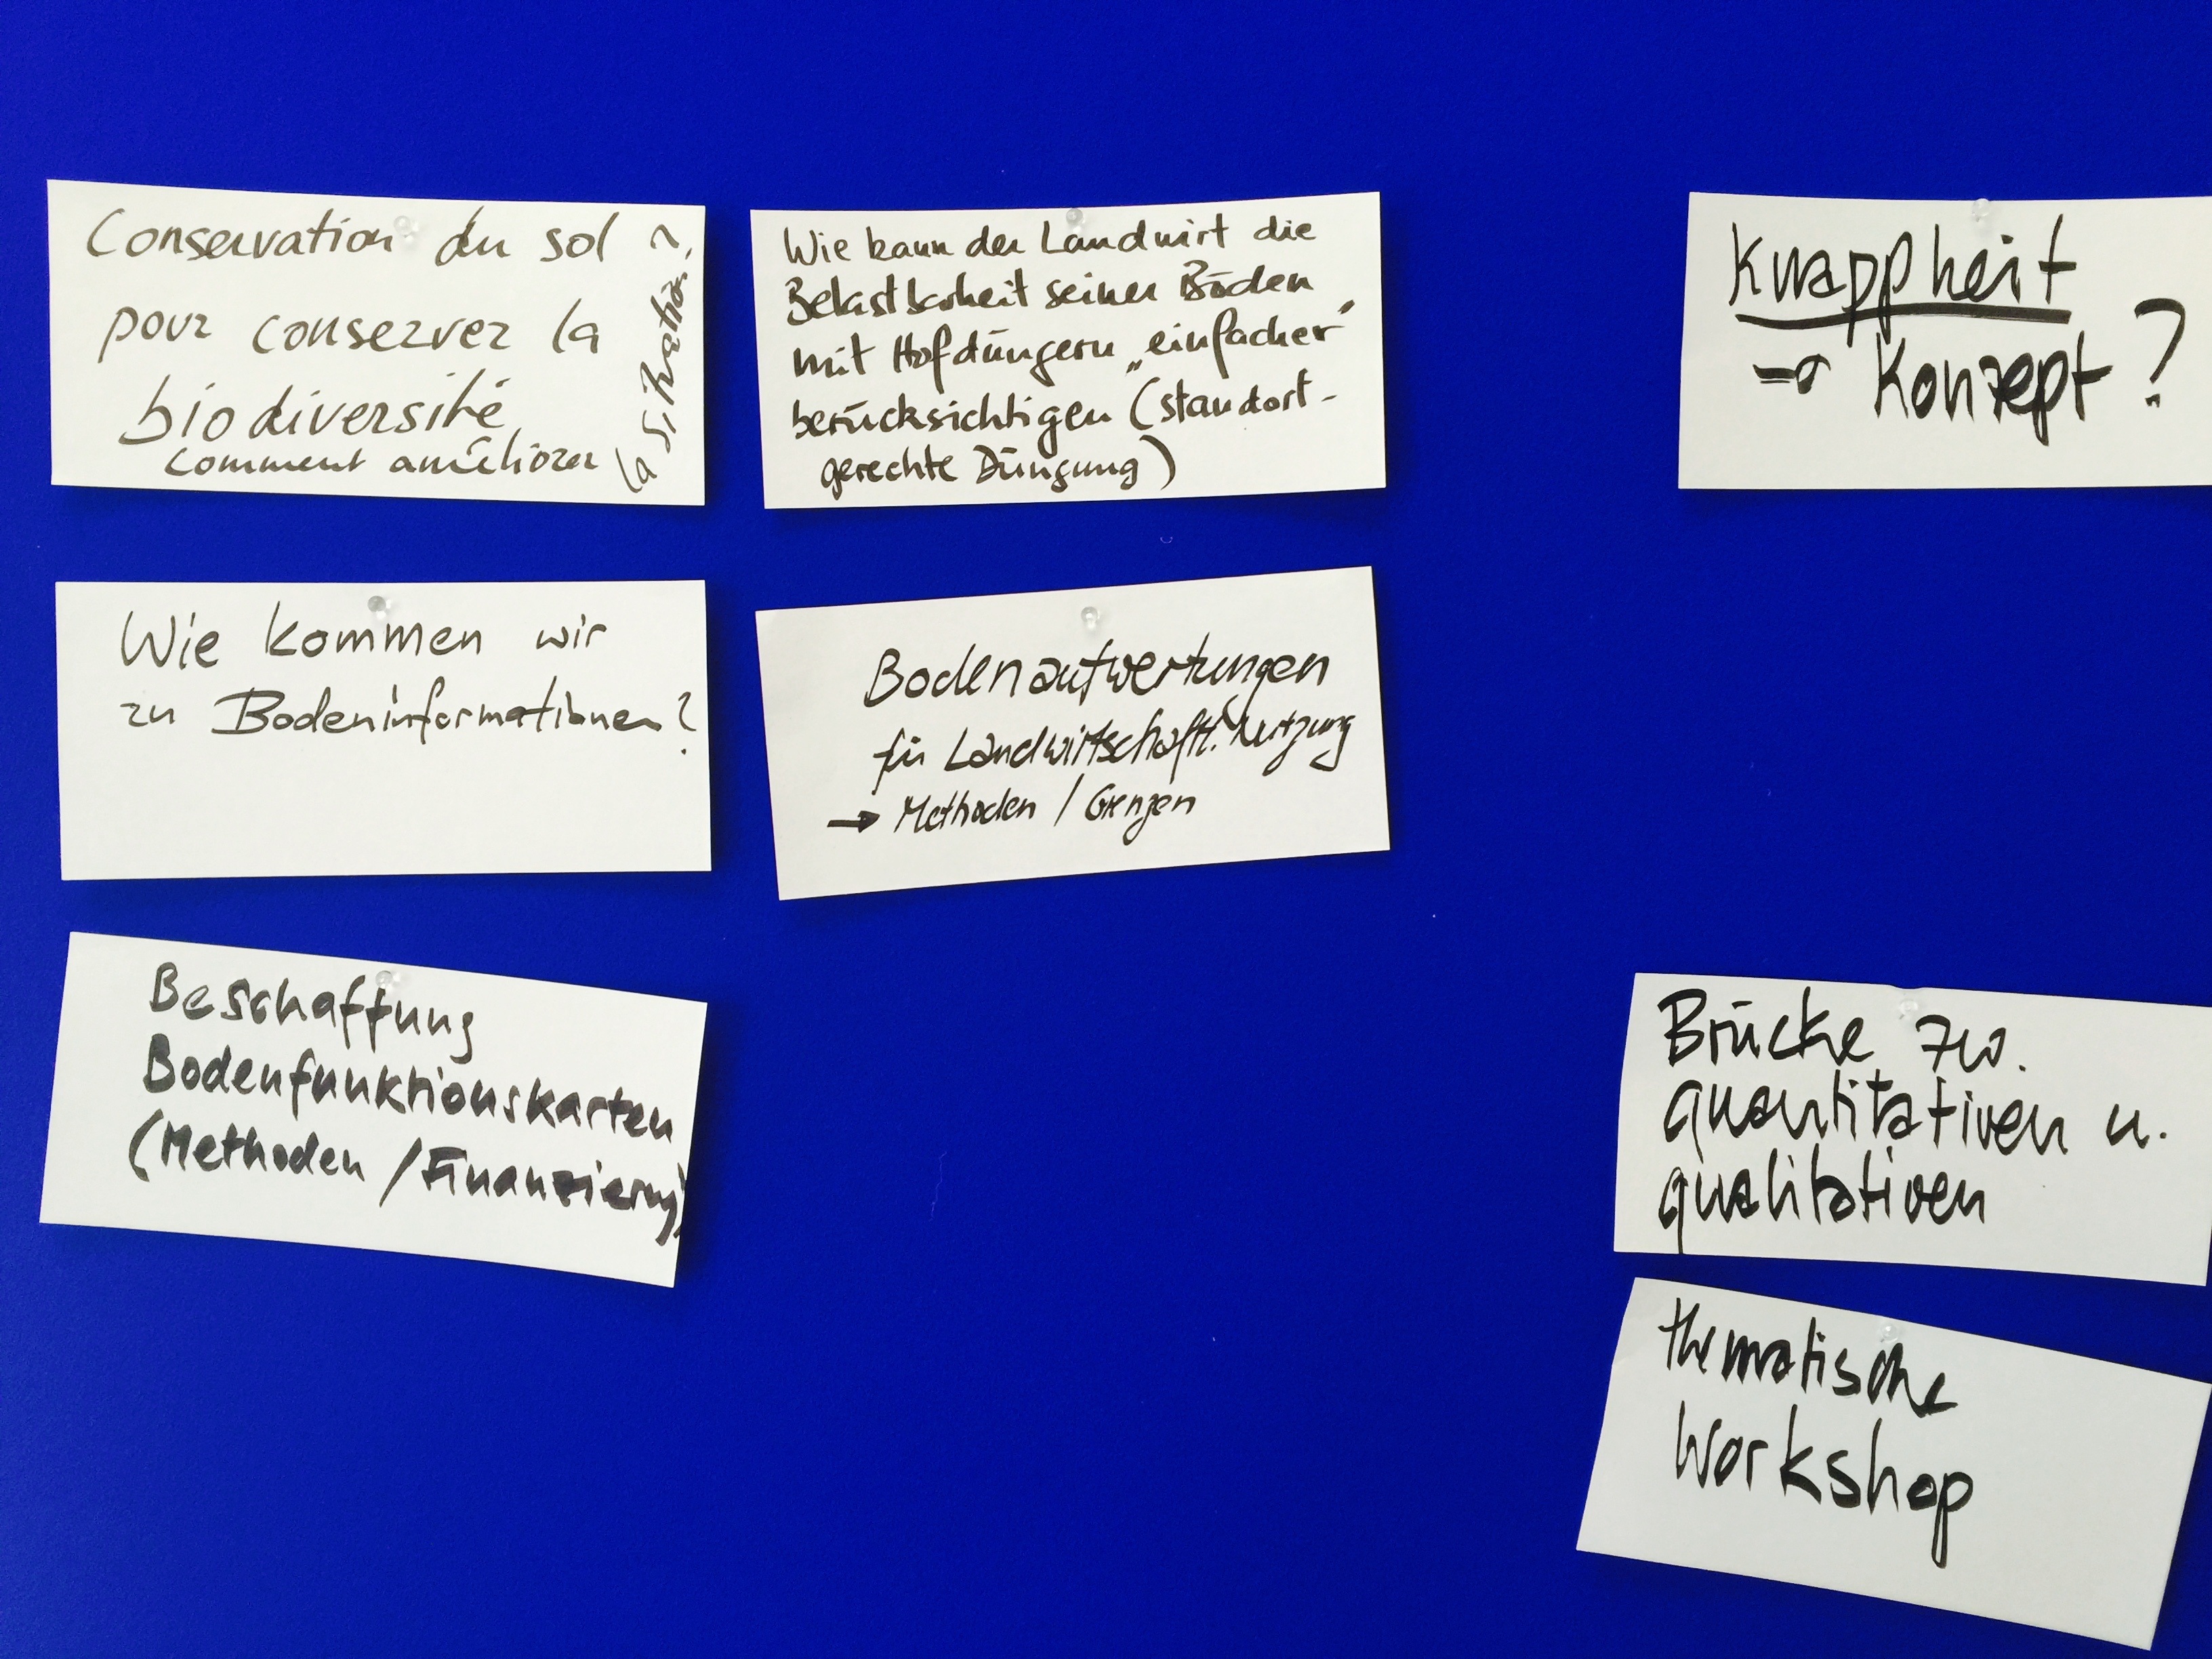 Conservation du sol
pour conserver la
biodiversité
comment améliorer
la situation ?
Wie kann der Landwirt die
Belastbarkeit seiner Böden
mit Hofdüngern „einfacher"
berücksichtigen (standort-
gerechte Düngung)
Knappheit
→ Konzept ?
Wie kommen wir
zu Bodeninformationen ?
Bodenaufwertungen
für Landwirtschaftl. Nutzung
→ Methoden / Grenzen
Beschaffung
Bodenfunktionskarten
(Methoden / Finanzierung)
Brücke zw.
quantitativen u.
qualitativen
thematische
Workshop